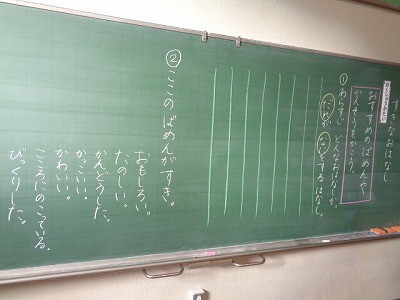 すきなおはなし
おすすめのばめんや、
かんそうをかこう。
① あらすじ どんなおはなしか。
だれが なにをするはなし。
② ここのばめんがすき。
おもしろい。
たのしい。
かんどうした。
かっこいい。
かわいい。
こころにのこっている。
びっくりした。